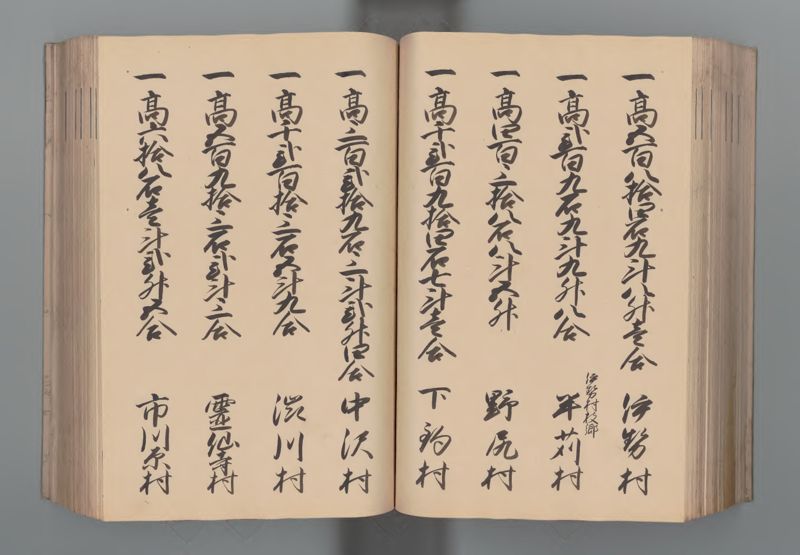 一高五百八拾四石九斗八升壱合 伊勢村
一高弐百九石九斗九升八合 伊勢村枝郷 半苅村
一高四百三拾八石八斗五升 野尻村
一高千弐百九拾四石七斗壱合 下鈎村
一高三百弐拾九石三斗弐升四合 中沢村
一高千弐百拾三石五斗九合 渋川村
一高五百九拾三石弐斗三合 霊仙寺村
一高六拾八石壱斗弐升五合 市川原村